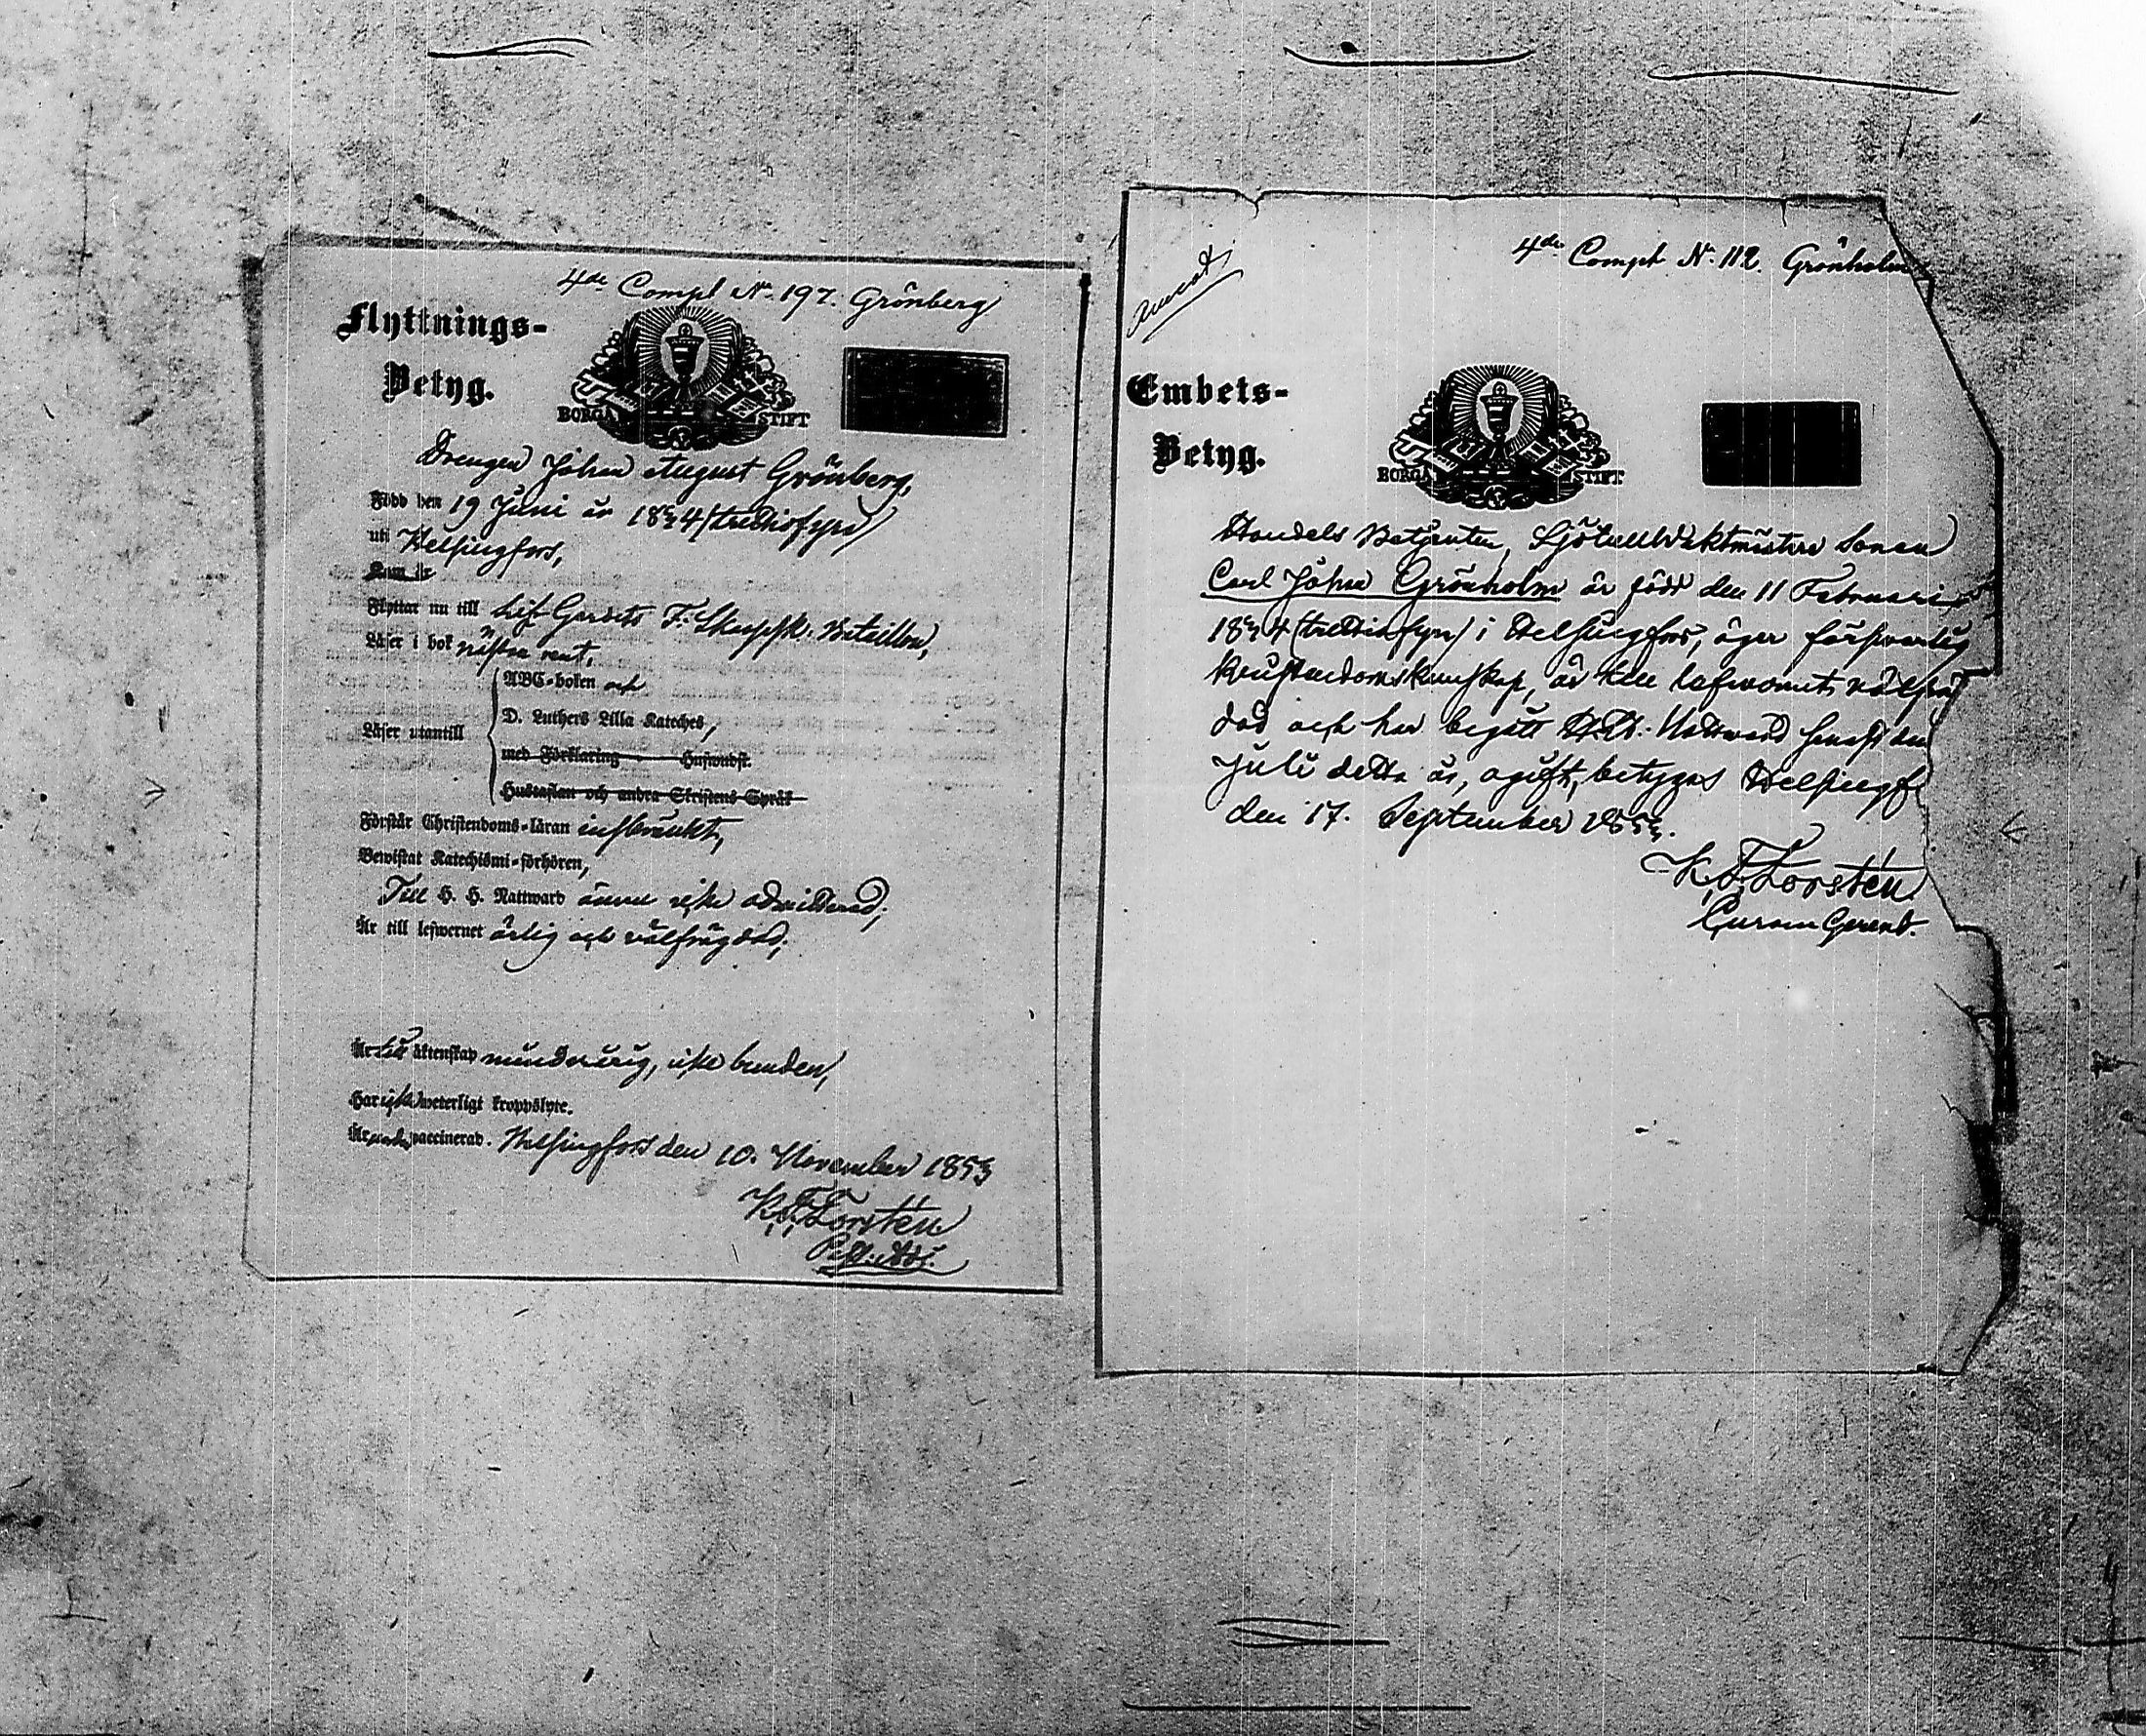 4de Comp. N. 197. Grönberg
Flyttnings-
Betyg.
BORGÅ STIFT
Drengen Johan August Grönberg,
Född den 19 Juni år 1834 (trettiofyra)
uti Helsingfors,
Kom år
Flyttar nu till Lif Gardets F. Skarpsk. Bataillon,
Läser i bok nästan rent,
ABC-boken och
D. Luthers Lilla Kateches,
Läser utantill
med Förklaring
Hustaflan och andra Skriftens Språk
Förstår Christendoms-läran inskränkt,
Bewistat Katechismi-förhören,
Till H. H. Nattward ännu icke admitterad;
Är till lefwernet ärlig och välfrägdad;
Är till äktenskap minderårig, icke bunden,
Har icke weterligt kroppslyte.
Är vaccinerad. Helsingfors den 10. November 1853
K. F. Forstén
4de Comp. N. 112. Grönholm
Embets-
Betyg.
BORGÅ STIFT
Handels Betjenten, Sjötullvaktmästare Sonen
Carl Johan Grönholm är född den 11 Februari
1834 (trettiofyra) i Helsingfors, äger försvarlig
Kristendomskunskap, är till lefvernet välfräg
dad och har begått H.H. Nattvard senast den
Juli detta år, ogift, betygas Helsingf
den 17. September 1853.
K. F. Forstén
Curam Gerens.